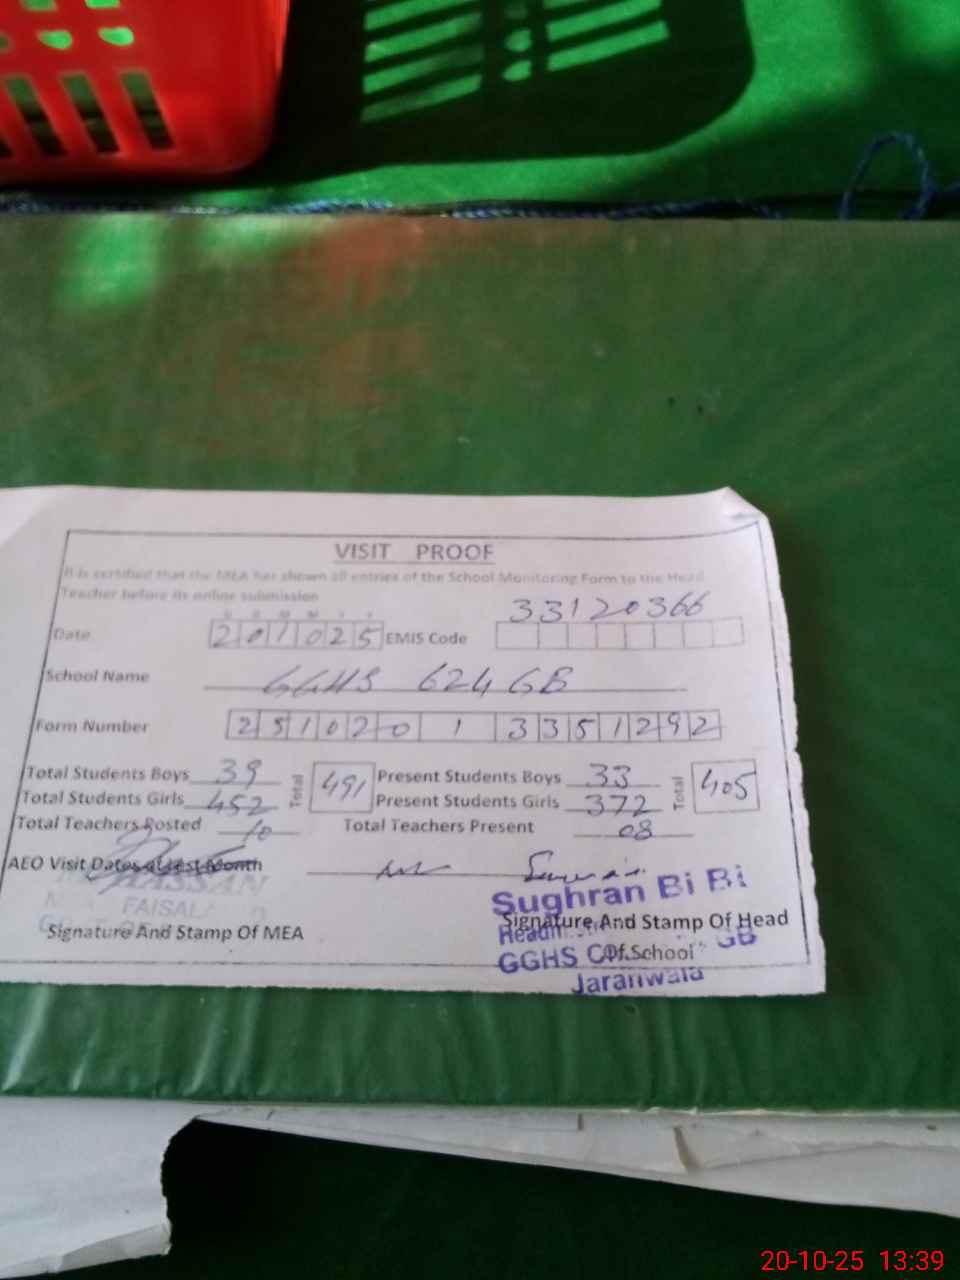 VISIT PROOF
It is certified that the MEA has shown all entries of the School Monitoring Form to the Head
Teacher before its online submission
33120366
Date 201025 EMIS Code
School Name GGHS 624 GB
Form Number 2 5 1 0 2 0 1 3 3 5 1 2 9 2
Total Students Boys 39 Total 491 Present Students Boys 33 Total 405
Total Students Girls 452 Present Students Girls 372
Total Teachers Posted 10 Total Teachers Present 08
AEO Visit Dates of Last Month
HASSAN
FAISAL
Sughran Bi Bi
Signature And Stamp Of MEA
Signature And Stamp Of Head
Of School
GGHS GB
Jaranwala
20-10-25 13:39